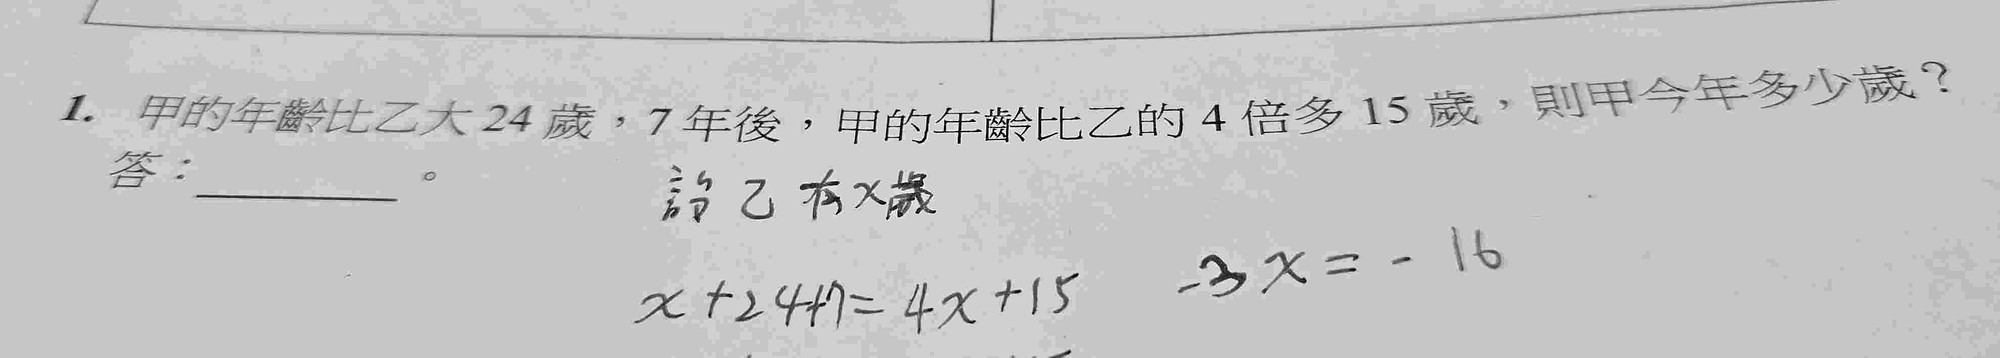 1. 甲的年齡比乙大 24 歲，7 年後，甲的年齡比乙的 4 倍多 15 歲，則甲今年多少歲？
答：________。
設乙有x歲
x+24+7=4x+15
-3x=-16